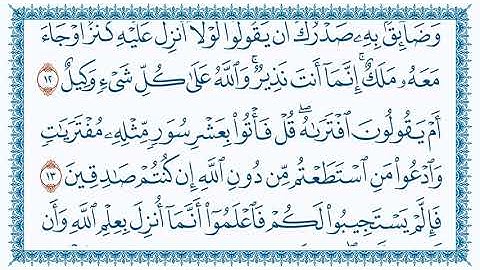 وَضَآئِقٌۢ بِهِۦ صَدْرُكَ أَن يَقُولُوا۟ لَوْلَآ أُنزِلَ عَلَيْهِ كَنزٌ أَوْ جَآءَ
مَعَهُۥ مَلَكٌ ۚ إِنَّمَآ أَنتَ نَذِيرٌ ۚ وَٱللَّهُ عَلَىٰ كُلِّ شَىْءٍ وَكِيلٌ ١٢
أَمْ يَقُولُونَ ٱفْتَرَىٰهُ ۖ قُلْ فَأْتُوا۟ بِعَشْرِ سُوَرٍ مِّثْلِهِۦ مُفْتَرَيَٰتٍ
وَٱدْعُوا۟ مَنِ ٱسْتَطَعْتُم مِّن دُونِ ٱللَّهِ إِن كُنتُمْ صَٰدِقِينَ ١٣
فَإِلَّمْ يَسْتَجِيبُوا۟ لَكُمْ فَٱعْلَمُوٓا۟ أَنَّمَآ أُنزِلَ بِعِلْمِ ٱللَّهِ وَأَن